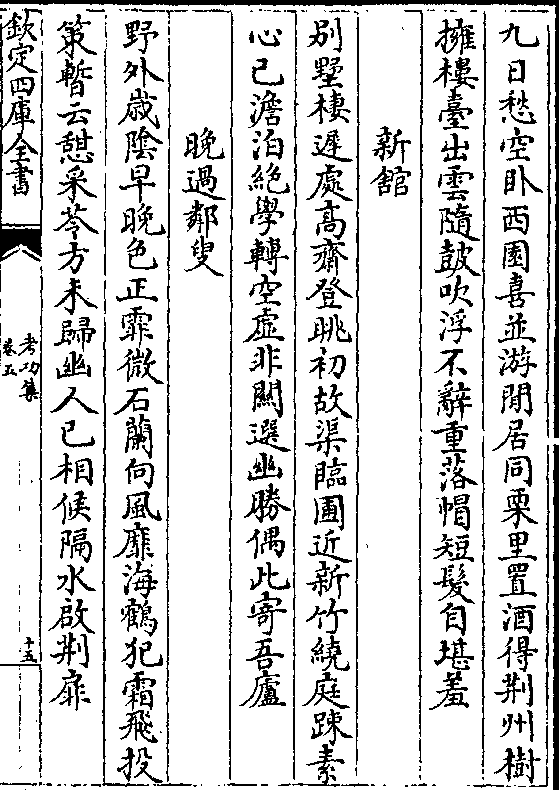 九日愁空卧西園喜並游閒居同栗里置酒得荆州樹
擁樓臺出雲隨鼓吹浮不辭重落帽短髮自堪羞
新舘
别墅棲遲處高齋登眺初故渠臨圃近新竹繞庭踈素
心已澹泊絶學轉空虚非關選幽勝偶此寄吾廬
晚過鄰叟
野外歲陰早晚色正霏微石蘭向風靡海鶴犯霜飛投
策暫云憇采芩方未歸幽人已相候隔水啟荆扉
欽定四庫全書
考功集
卷五
十五